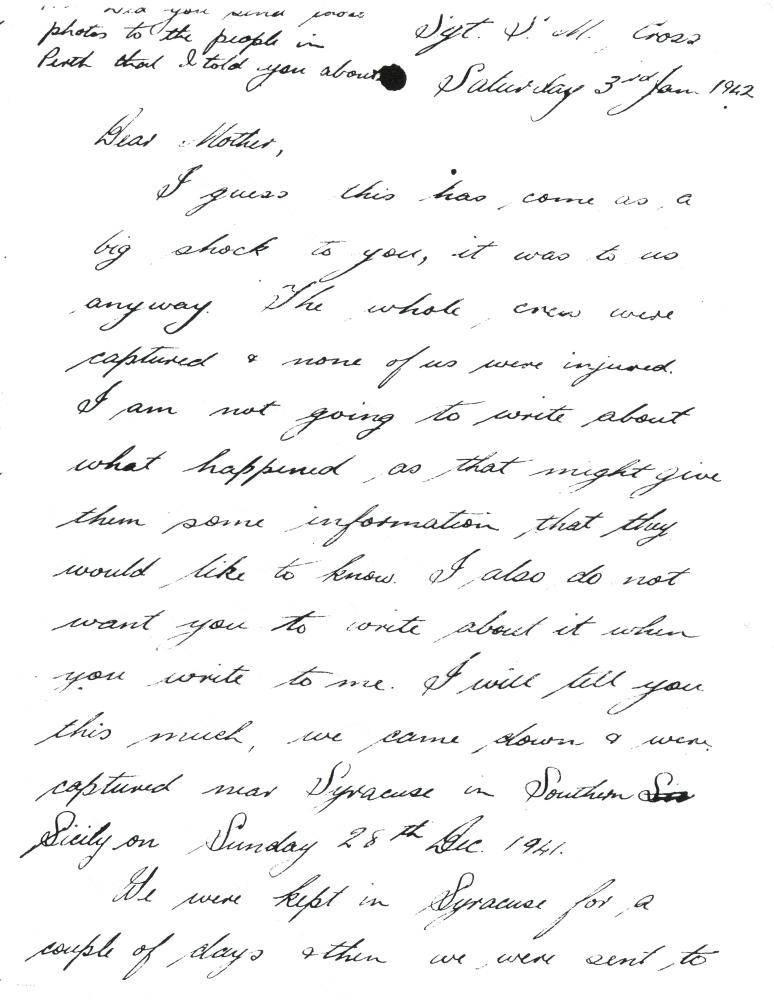 Did you send those
photos to the people in
Perth that I told you about
Sgt. S. M. Cross
Saturday 3rd Jan 1942
Dear Mother,
I guess this has come as a
big shock to you, it was to us
anyway. The whole crew were
captured & none of us were injured.
I am not going to write about
what happened as that might give
them some information that they
would like to know. I also do not
want you to write about it when
you write to me. I will tell you
this much, we came down & were
captured near Syracuse in Southern
Sicily on Sunday 28th Dec. 1941.
We were kept in Syracuse for a
couple of days & then we were sent to